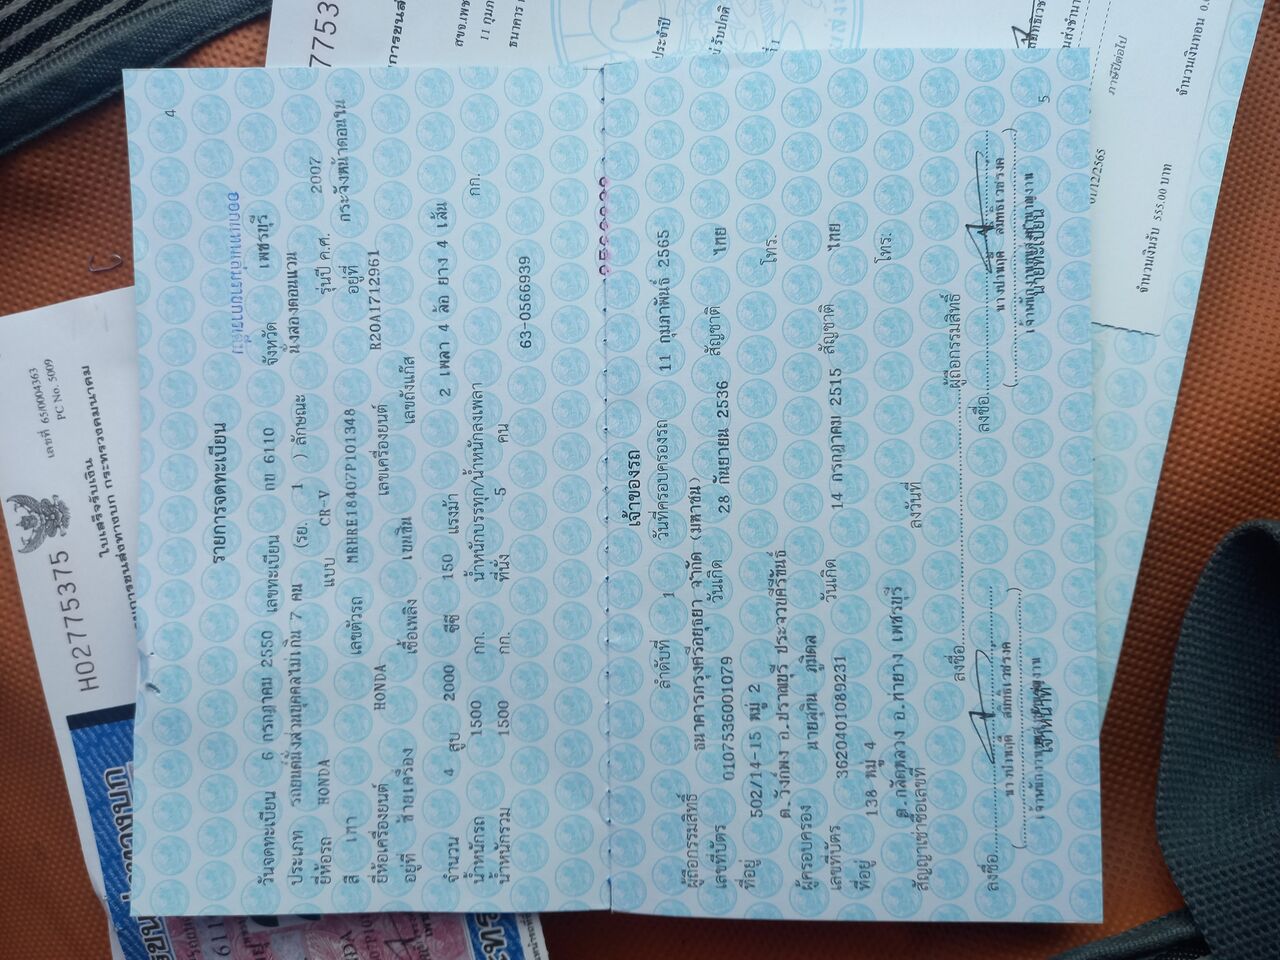 4
ออกแทนเล่มรายการเต็ม
รายการจดทะเบียน
วันจดทะเบียน 6 กรกฎาคม 2550 เลขทะเบียน กข 6110 จังหวัด เพชรบุรี
ประเภท รถยนต์นั่งส่วนบุคคลไม่เกิน 7 คน (รย. 1 ) ลักษณะ นั่งสองตอนแวน
ยี่ห้อรถ HONDA แบบ CR-V รุ่นปี ค.ศ. 2007
สี เทา เลขตัวรถ MRHRE18407P101348 อยู่ที่ กระจังหน้าตอนใน
ยี่ห้อเครื่องยนต์ HONDA เลขเครื่องยนต์ R20A1712961
อยู่ที่ ซ้ายเครื่อง เชื้อเพลิง เบนซิน เลขถังแก๊ส
จำนวน 4 สูบ 2000 ซีซี 150 แรงม้า 2 เพลา 4 ล้อ ยาง 4 เส้น
น้ำหนักรถ 1500 กก. น้ำหนักบรรทุก/น้ำหนักลงเพลา กก.
น้ำหนักรวม 1500 กก. ที่นั่ง 5 คน 63-0566939
เจ้าของรถ
ลำดับที่ 1 วันที่ครอบครองรถ 11 กุมภาพันธ์ 2565
ผู้ถือกรรมสิทธิ์ ธนาคารกรุงศรีอยุธยา จำกัด (มหาชน)
เลขที่บัตร 0107536001079 วันเกิด 28 กันยายน 2536 สัญชาติ ไทย
ที่อยู่ 502/14-15 หมู่ 2 โทร.
ต.วังก์พง อ.ปราณบุรี ประจวบคีรีขันธ์
ผู้ครอบครอง นายสุทิน ภูมิดล
เลขที่บัตร 3620401089231 วันเกิด 14 กรกฎาคม 2515 สัญชาติ ไทย
ที่อยู่ 138 หมู่ 4 โทร.
ต.กลัดหลวง อ.ท่ายาง เพชรบุรี
สัญญาเช่าซื้อเลขที่ ลงวันที่
ลงชื่อ ผู้ถือกรรมสิทธิ์
ลงชื่อ
ลงชื่อ
เจ้าหน้าที่
นายทะเบียน
5
H02775375
เลขที่ 65/0004363
PC No. 5009
ใบเสร็จรับเงิน
กรมการขนส่งทางบก กระทรวงคมนาคม
11 กุมภา
ธนาคาร
ประจำปี
ภาษีปีต่อไป
01/12/2565
จำนวนเงินรับ 555.00 บาท
จำนวนเงินทอน 0.